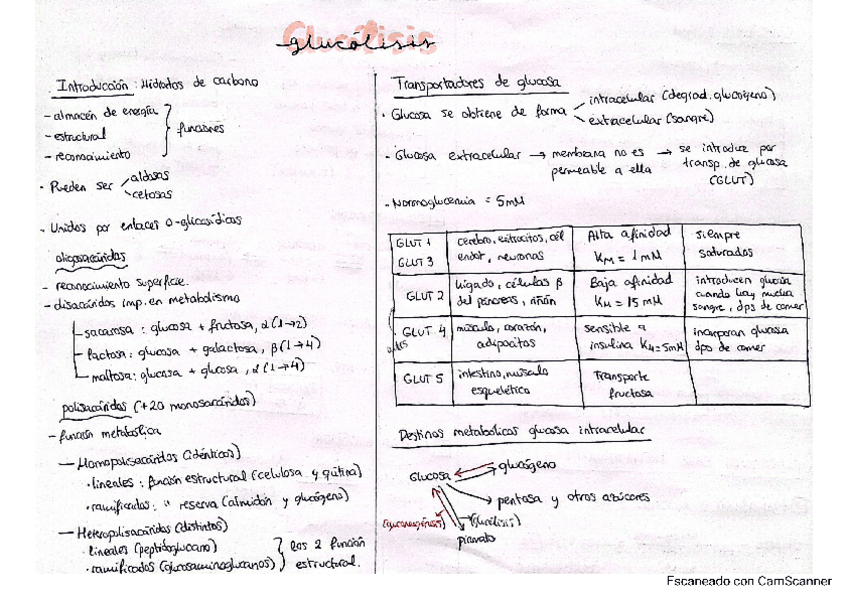 glucólisis
Introducción: Hidratos de carbono
- almacén de energía
- estructural
- reconocimiento
funciones
· Pueden ser
aldosas
cetosas
· Unidos por enlaces O-glicosídicos
oligosacáridos
- reconocimiento superficie.
- disacáridos imp. en metabolismo
- sacarosa: glucosa + fructosa, α(1→2)
- lactosa: glucosa + galactosa, β(1→4)
- maltosa: glucosa + glucosa, α(1→4)
polisacáridos (+20 monosacáridos)
- función metabólica
— Homopolisacáridos (idénticos)
· lineales: función estructural (celulosa y quitina)
· ramificados: " reserva (almidón y glucógeno)
— Heteropolisacáridos (distintos)
· lineales (peptidoglucano)
· ramificados (glucosaminoglucanos)
los 2 función
estructural.
Transportadores de glucosa
· Glucosa se obtiene de forma
intracelular (degrad. glucógeno)
extracelular (sangre)
· Glucosa extracelular → membrana no es permeable a ella → se introduce por transp. de glucosa (GLUT)
- Normoglucemia = 5mM
GLUT 1
GLUT 3
cerebro, eritrocitos, cél
endot, neuronas
Alta afinidad
KM = 1 mM
siempre
saturados
GLUT 2
hígado, células β
del páncreas, riñón
Baja afinidad
KM = 15 mM
introducen glucosa
cuando hay mucha
sangre, dps de comer
GLUT 4
músculo, corazón,
adipocitos
sensible a
insulina KM=5mM
incorporan glucosa
dps de comer
GLUT 5
intestino, músculo
esquelético
Transporte
fructosa
Destinos metabólicos glucosa intracelular
Glucosa
glucógeno
pentosa y otros azúcares
(gluconeogénesis)
(glucólisis)
piruvato
Escaneado con CamScanner